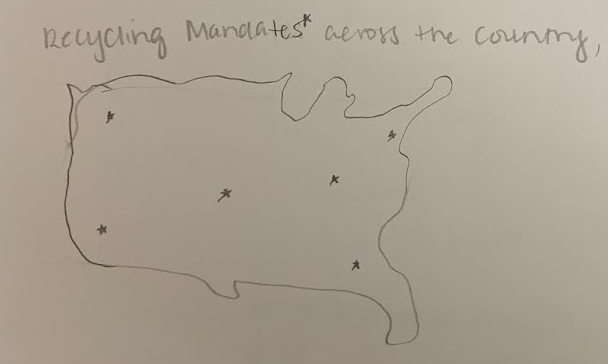 Recycling Mandates* across the country,